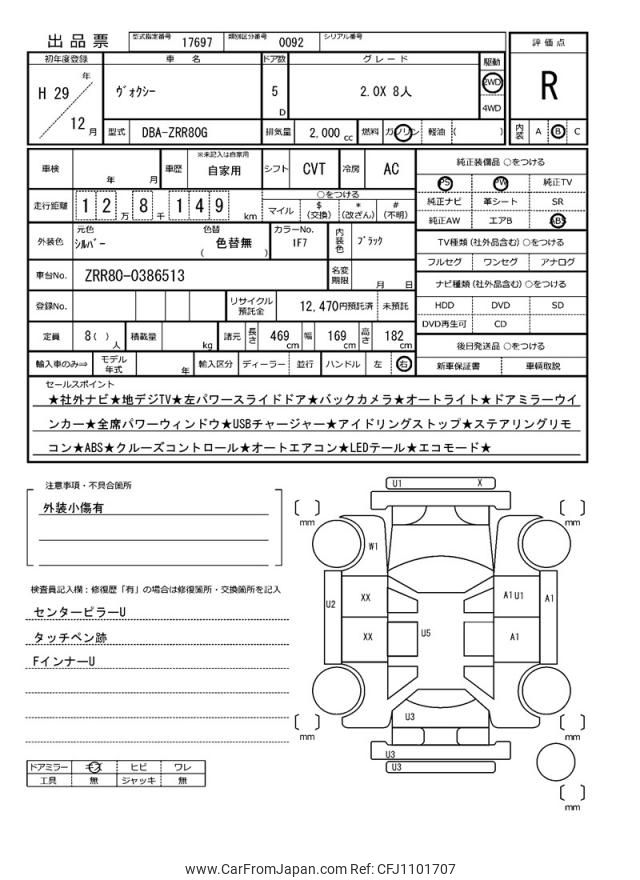 出品票
型式指定番号 17697 類別区分番号 0092 シリアル番号
評価点
R
初年度登録 車名 ドア数 グレード 駆動
H 29 年 12 月
ヴォクシー 5 D 2.0X 8人 2WD 4WD
型式 DBA-ZRR80G 排気量 2,000 cc 燃料 ガソリン 軽油 ( )
内装 A B C
車検 年 月 車歴 ※未記入は自家用 自家用 シフト CVT 冷房 AC
走行距離 12万8千149 km
○をつける
マイル $(交換) *(改ざん) #(不明)
外装色 元色 シルバー 色替 ( 色替無 ) カラーNo. 1F7 内装色 ブラック
車台No. ZRR80-0386513 名変期限 月 日
登録No. リサイクル預託金 12,470円預託済 未預託
定員 8( ) 人 積載量 kg 諸元 長さ 469 cm 幅 169 cm 高さ 182 cm
輸入車のみ⇒ モデル年式 年 輸入区分 ディーラー 並行 ハンドル 左 右
純正装備品 ○をつける
PS PW 純正TV
純正ナビ 革シート SR
純正AW エアB ABS
TV種類(社外品含む)○をつける
フルセグ ワンセグ アナログ
ナビ種類(社外品含む)○をつける
HDD DVD SD
DVD再生可 CD
後日発送品 ○をつける
新車保証書 車輌取説
セールスポイント
★社外ナビ★地デジTV★左パワースライドドア★バックカメラ★オートライト★ドアミラーウイ
ンカー★全席パワーウィンドウ★USBチャージャー★アイドリングストップ★ステアリングリモ
コン★ABS★クルーズコントロール★オートエアコン★LEDテール★エコモード★
注意事項・不具合箇所
外装小傷有
検査員記入欄：修復歴「有」の場合は修復箇所・交換箇所を記入
センターピラーU
タッチペン跡
FインナーU
ドアミラー キズ ヒビ ワレ
工具 無 ジャッキ 無
U1 X
mm mm
W1
U2 XX A1U1 A1
XX U5 A1
U3
mm mm
U3
U3
mm
www.CarFromJapan.com Ref: CFJ1101707